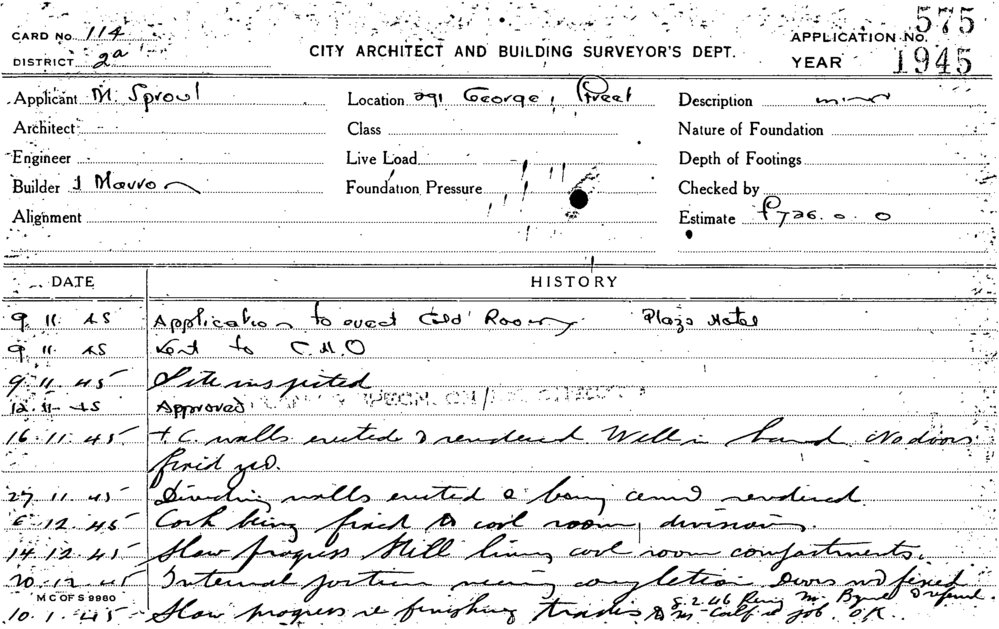 CARD No. 114
DISTRICT 2a
CITY ARCHITECT AND BUILDING SURVEYOR'S DEPT.
APPLICATION NO. 575
YEAR 1945
Applicant M. Sproul Location 291 George, Street Description minor
Architect Class Nature of Foundation
Engineer Live Load Depth of Footings
Builder J Mavro Foundation Pressure Checked by
Alignment Estimate £726. 0. 0
DATE HISTORY
9 11. 45 Application to erect Cold Room Plaza Hotel
9 11. 45 Sent to C.M.O
9. 11. 45 Site inspected
12. 11. 45 Approved
16. 11. 45 T C. walls erected & rendered Well in hand No doors
fixed yet.
27. 11. 45 Dividing walls erected & being cement rendered
6. 12. 45 Cork being fixed to cool room, divisions.
14. 12. 45 Slow progress Still lining cool room compartments.
20. 12. 45 Internal portion nearing completion Doors not fixed
M C OF S 9960
10. 1. 45 Slow progress re finishing trades 8. 2. 46 Mr Byrne
Mr job. O.K.